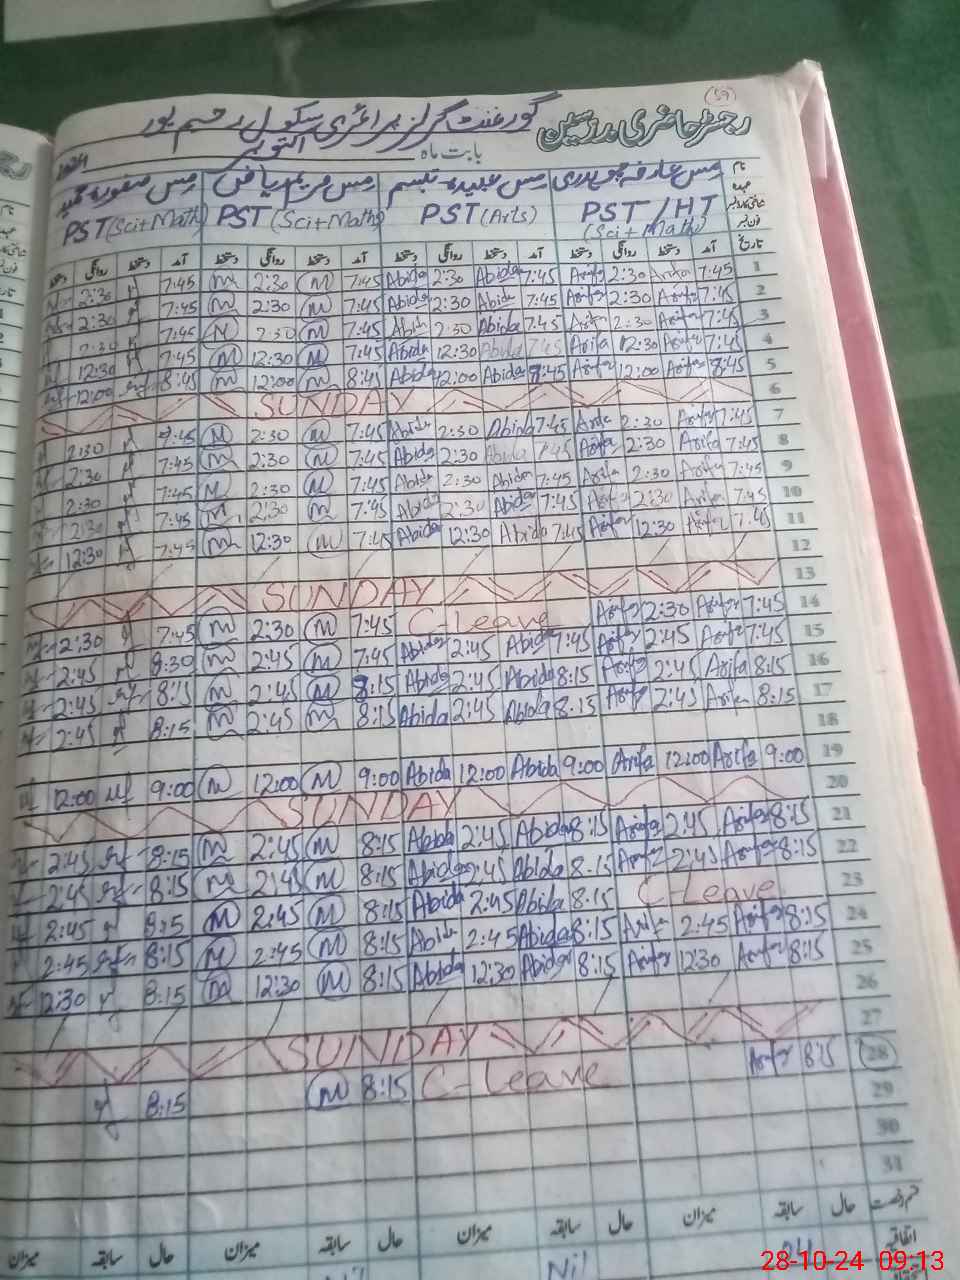 59
رجسٹر حاضری مدرسین گورنمنٹ گرلز پرائمری سکول رحیم پور
بابت ماہ اکتوبر 2024
نام مس عارفہ چوہدری مس عبیدہ تبسم مس مریم ریاض
عہدہ PST/HT (Sci+Math) PST (Arts) PST (Sci+Math) PST (Sci+Math)
تاریخ آمد دستخط روانگی دستخط آمد دستخط روانگی دستخط آمد دستخط روانگی دستخط آمد دستخط روانگی دستخط
1 7:45 Arifa 2:30 Arifa 7:45 Abida 2:30 Abida 7:45 M 2:30 M 7:45 2:30
2 7:45 Arifa 2:30 Arifa 7:45 Abida 2:30 Abida 7:45 M 2:30 M 7:45 2:30
3 7:45 Arifa 2:30 Arifa 7:45 Abida 2:30 Abida 7:45 M 2:30 M 7:45 2:30
4 7:45 Arifa 12:30 Arifa 7:45 Abida 12:30 Abida 7:45 M 12:30 M 7:45 12:30
5 8:45 Arifa 12:00 Arifa 8:45 Abida 12:00 Abida 8:45 M 12:00 M 8:45 12:00
6 SUNDAY
7 7:45 Arifa 2:30 Arifa 7:45 Abida 2:30 Abida 7:45 M 2:30 M 7:45 2:30
8 7:45 Arifa 2:30 Arifa 7:45 Abida 2:30 Abida 7:45 M 2:30 M 7:45 2:30
9 7:45 Arifa 2:30 Arifa 7:45 Abida 2:30 Abida 7:45 M 2:30 M 7:45 2:30
10 7:45 Arifa 2:30 Arifa 7:45 Abida 2:30 Abida 7:45 M 2:30 M 7:45 2:30
11 7:45 Arifa 12:30 Arifa 7:45 Abida 12:30 Abida 7:45 M 12:30 M 7:45 12:30
12
13 SUNDAY
14 7:45 Arifa 2:30 Arifa C-Leave 7:45 M 2:30 M 7:45 2:30
15 7:45 Arifa 2:45 Arifa 7:45 Abida 2:45 Abida 7:45 M 2:45 M 8:30 2:45
16 8:15 Arifa 2:45 Arifa 8:15 Abida 2:45 Abida 8:15 M 2:45 M 8:15 2:45
17 8:15 Arifa 2:45 Arifa 8:15 Abida 2:45 Abida 8:15 M 2:45 M 8:15 2:45
18
19 9:00 Arifa 12:00 Arifa 9:00 Abida 12:00 Abida 9:00 M 12:00 M 9:00 12:00
20 SUNDAY
21 8:15 Arifa 2:45 Arifa 8:15 Abida 2:45 Abida 8:15 M 2:45 M 8:15 2:45
22 8:15 Arifa 2:45 Arifa 8:15 Abida 2:45 Abida 8:15 M 2:45 M 8:15 2:45
23 C-Leave 8:15 Abida 2:45 Abida 8:15 M 2:45 M 8:15 2:45
24 8:15 Arifa 2:45 Arifa 8:15 Abida 2:45 Abida 8:15 M 2:45 M 8:15 2:45
25 8:15 Arifa 12:30 Arifa 8:15 Abida 12:30 Abida 8:15 M 12:30 M 8:15 12:30
26
27 SUNDAY
28 8:15 Arifa C-Leave 8:15 M 8:15
29
30
31
قسم رخصت حال سابقہ میزان حال سابقہ میزان حال سابقہ میزان حال سابقہ میزان
اتفاقیہ Nil
28-10-24 09:13